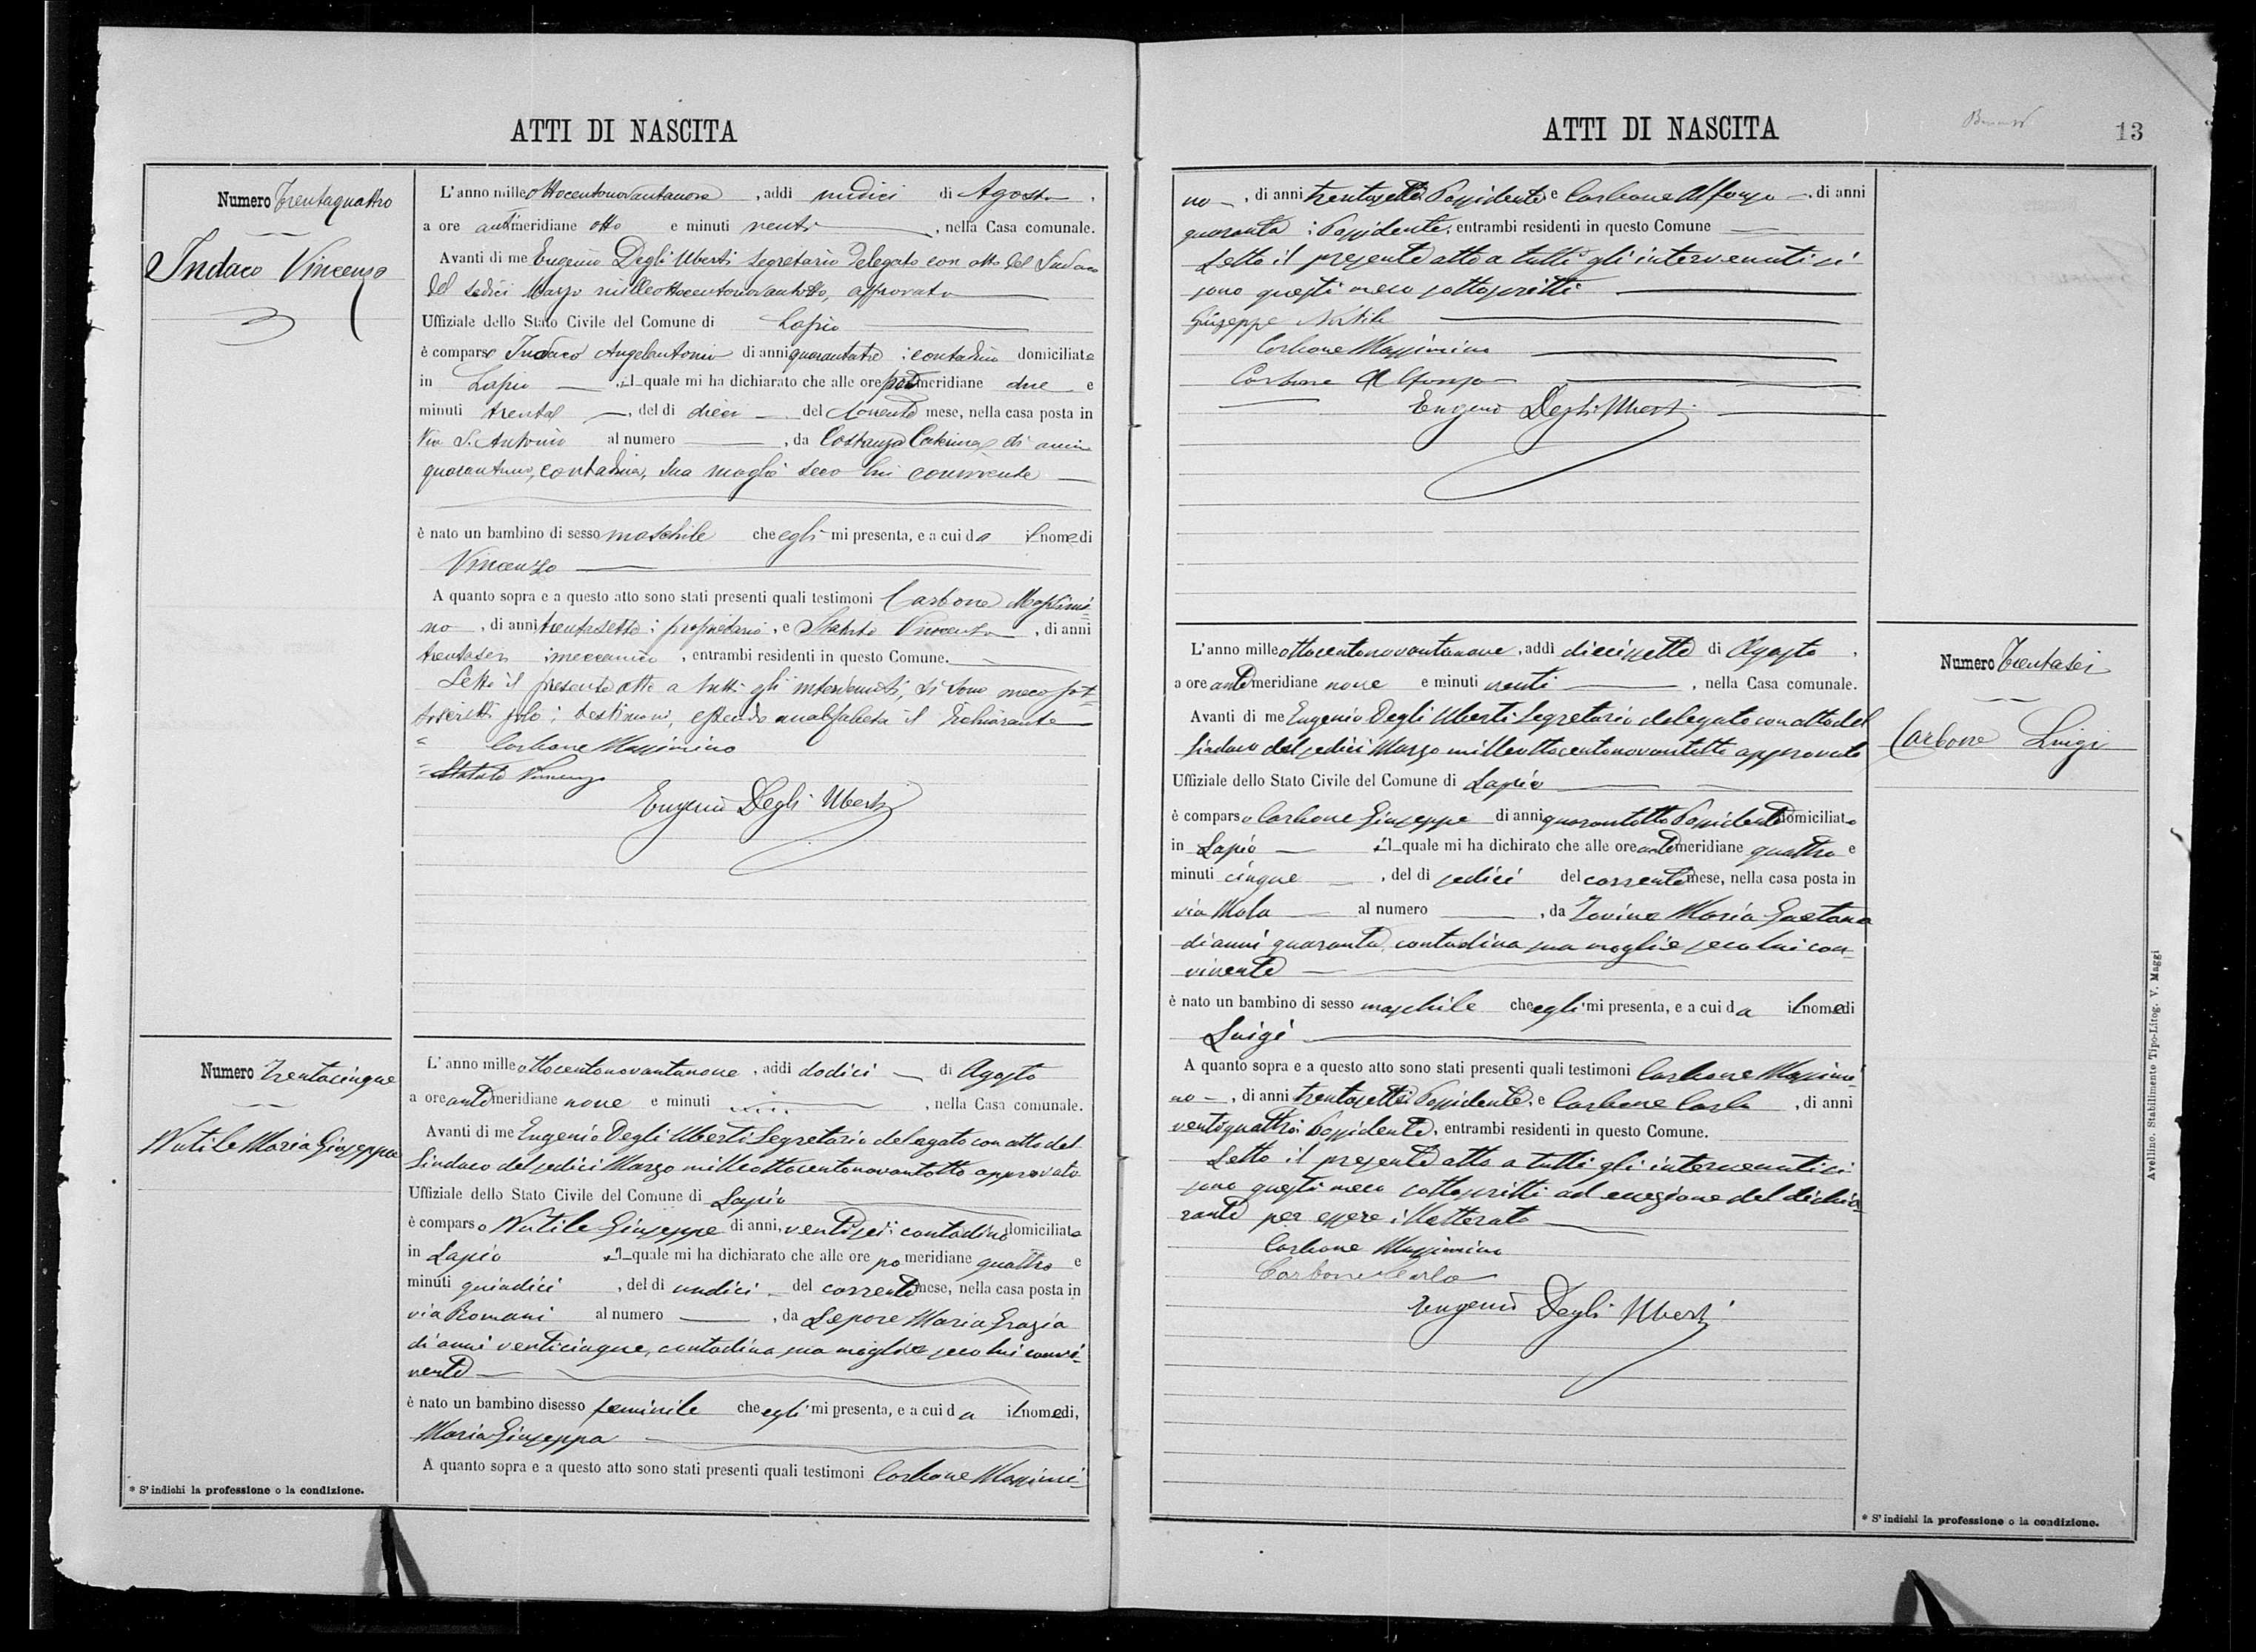 ATTI DI NASCITA
Numero Trentaquattro
Indaco Vincenzo
L'anno mille ottocentonovantanove, addì undici di Agosto,
a ore antimeridiane otto e minuti venti, nella Casa comunale.
Avanti di me Eugenio Degli Uberti Segretario Delegato con atto del Sindaco
del sedici Marzo milleottocentonovantotto, approvato
Uffiziale dello Stato Civile del Comune di Lapio
è comparso Indaco Angelantonio di anni quarantatre ; contadino domiciliato
in Lapio, il quale mi ha dichiarato che alle ore pomeridiane due e
minuti trenta, del dì dieci del corrente mese, nella casa posta in
Via S. Antonio al numero, da Costanza Caterina di anni
quarantuno, contadina, sua moglie seco lui convivente
è nato un bambino di sesso maschile che egli mi presenta, e a cui da il nome di
Vincenzo
A quanto sopra e a questo atto sono stati presenti quali testimoni Carbone Massimi-
no, di anni trentasette ; proprietario, e Statuto Vincenzo, di anni
trentasei ; meccanico, entrambi residenti in questo Comune.
Letto il presente atto a tutti gli intervenuti, si sono meco sot-
toscritti solo i testimoni, essendo analfabeta il dichiarante
Carbone Massimino
Statuto Vincenzo
Eugenio Degli Uberti
Numero Trentacinque
Nutile Maria Giuseppa
L'anno mille ottocentonovantanove, addì dodici di Agosto
a ore antimeridiane nove e minuti, nella Casa comunale.
Avanti di me Eugenio Degli Uberti Segretario delegato con atto del
Sindaco del sedici Marzo milleottocentonovantotto approvato
Uffiziale dello Stato Civile del Comune di Lapio
è comparso Nutile Giuseppe di anni, ventisei ; contadino domiciliato
in Lapio il quale mi ha dichiarato che alle ore pomeridiane quattro e
minuti quindici, del dì undici del corrente mese, nella casa posta in
via Romani al numero, da Lepore Maria Grazia
di anni venticinque, contadina sua moglie seco lui convi-
vente
è nato un bambino di sesso feminile che egli mi presenta, e a cui da il nome di,
Maria Giuseppa
A quanto sopra e a questo atto sono stati presenti quali testimoni Carbone Massimi-
* S'indichi la professione o la condizione.
ATTI DI NASCITA
13
no, di anni trentasette Possidente e Carbone Alfonso, di anni
quaranta ; Possidente, entrambi residenti in questo Comune
Letto il presente atto a tutti gli intervenuti si
sono questi meco sottoscritti
Giuseppe Nutile
Carbone Massimino
Carbone Alfonso
Eugenio Degli Uberti
L'anno mille ottocentonovantanove, addì diecissette di Agosto,
a ore antimeridiane nove e minuti venti, nella Casa comunale.
Avanti di me Eugenio Degli Uberti Segretario delegato con atto del
Sindaco del sedici Marzo milleottocentonovantotto approvato
Uffiziale dello Stato Civile del Comune di Lapio
è comparso Carbone Giuseppe di anni quarantotto Possidente domiciliato
in Lapio il quale mi ha dichirato che alle ore antimeridiane quattro e
minuti cinque, del dì sedici del corrente mese, nella casa posta in
via Mola al numero, da Iovine Maria Gaetana
di anni quaranta, contadina sua moglie seco lui con-
vivente
è nato un bambino di sesso maschile che egli mi presenta, e a cui da il nome di
Luigi
A quanto sopra e a questo atto sono stati presenti quali testimoni Carbone Massimi-
no, di anni trentasette ; Possidente, e Carbone Carlo, di anni
ventiquattro ; Possidente, entrambi residenti in questo Comune.
Letto il presente atto a tutti gli intervenuti si
sono questi meco sottoscritti ad eccezione del dichia-
rante per essere illetterato
Carbone Massimino
Carbone Carlo
Eugenio Degli Uberti
Numero Trentasei
Carbone Luigi
* S'indichi la professione o la condizione.
Avellino. Stabilimento Tipo-Litog. V. Maggi